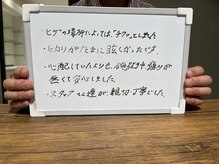 ・ヒゲの場所によっては、"チクッ"としました
・ヒカリが"たまに眩しかったです。
・心配していたよりも、
が
無くて安心しました。
・スタッフ
が、親切丁寧でした。